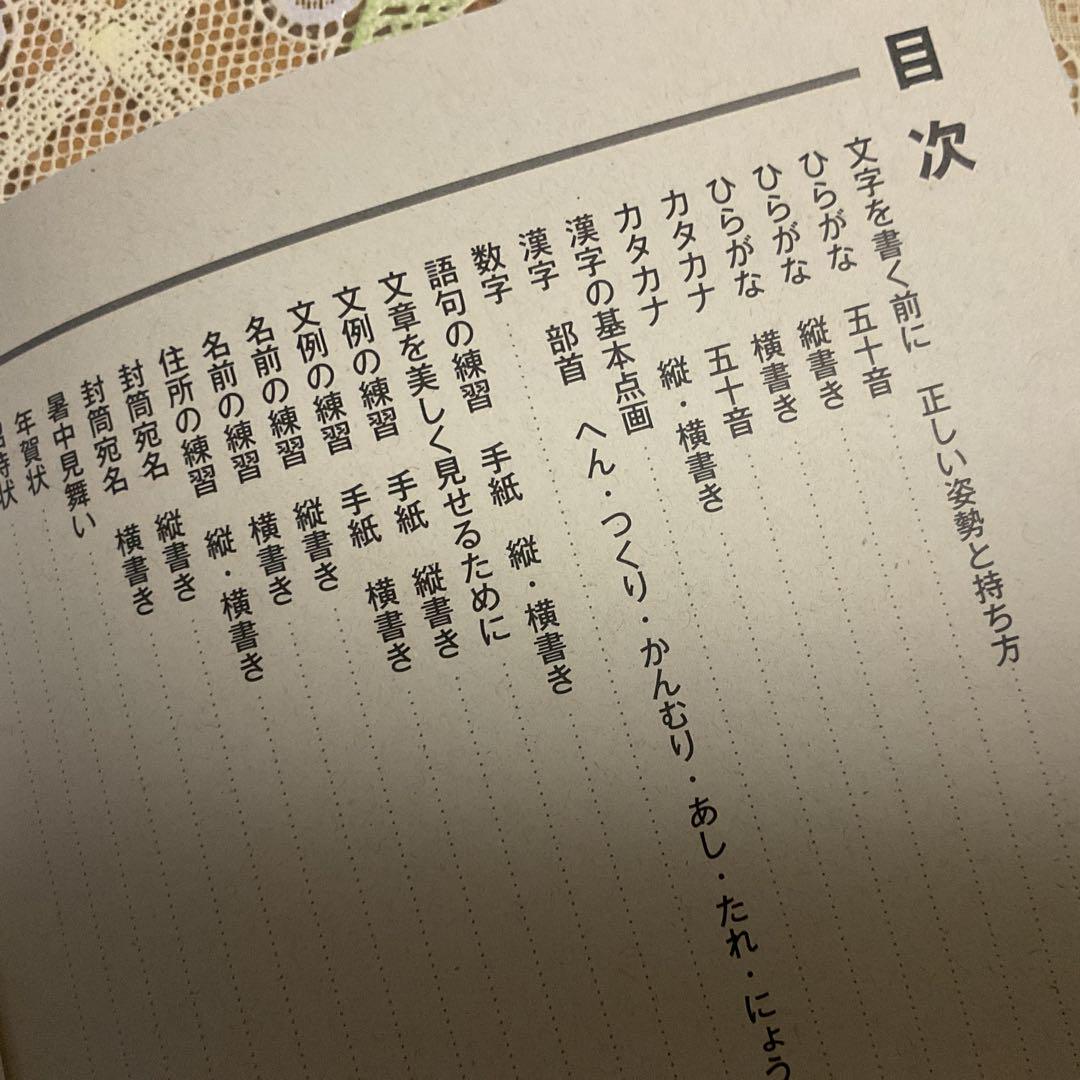 目次
文字を書く前に 正しい姿勢と持ち方
ひらがな 五十音
ひらがな 縦書き
ひらがな 横書き
カタカナ 五十音
カタカナ 縦・横書き
漢字の基本点画
漢字 部首 へん・つくり・かんむり・あし・たれ・にょう
数字
語句の練習 手紙 縦・横書き
文章を美しく見せるために
文例の練習 手紙 縦書き
文例の練習 手紙 横書き
名前の練習 縦書き
名前の練習 横書き
住所の練習 縦・横書き
封筒宛名 縦書き
封筒宛名 横書き
暑中見舞い
年賀状